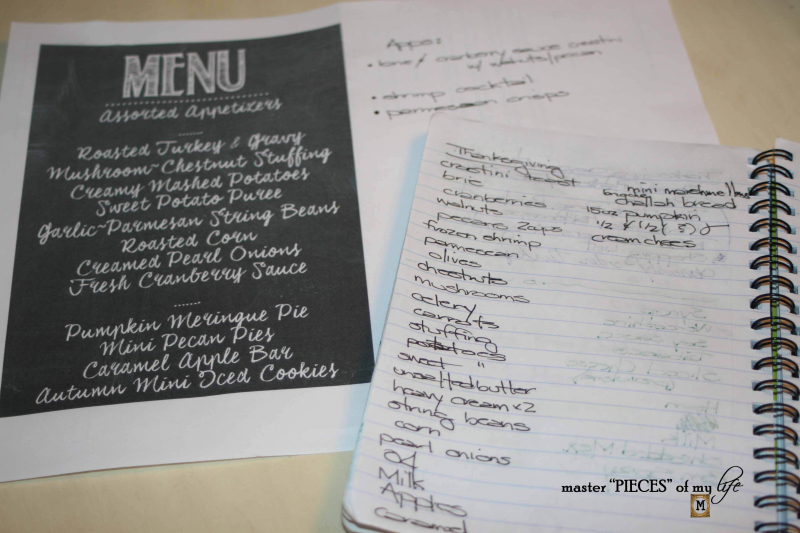 MENU
Assorted Appetizers
Roasted Turkey & Gravy
Mushroom-Chestnut Stuffing
Creamy Mashed Potatoes
Sweet Potato Puree
Garlic-Parmesan String Beans
Roasted Corn
Creamed Pearl Onions
Fresh Cranberry Sauce
Pumpkin Meringue Pie
Mini Pecan Pies
Caramel Apple Bar
Autumn Mini Iced Cookies
Apps:
• brie & cranberry sauce crostini
w/ walnuts/pecan
• shrimp cocktail
• parmesean crisps
Thanksgiving
crostini toast
brie
cranberries
walnuts
pecans 2 cups
frozen shrimp
parmesean
olives
chestnuts
mushrooms
celery
carrots
stuffing
potatoes
sweet "
unsalted butter
heavy cream x2
string beans
corn
pearl onions
OJ
Milk
Apples
Caramel
mini marshmallows
challah bread
15oz pumpkin
1/2 & 1/2
cream chees
Milk
master "PIECES" of my life
M